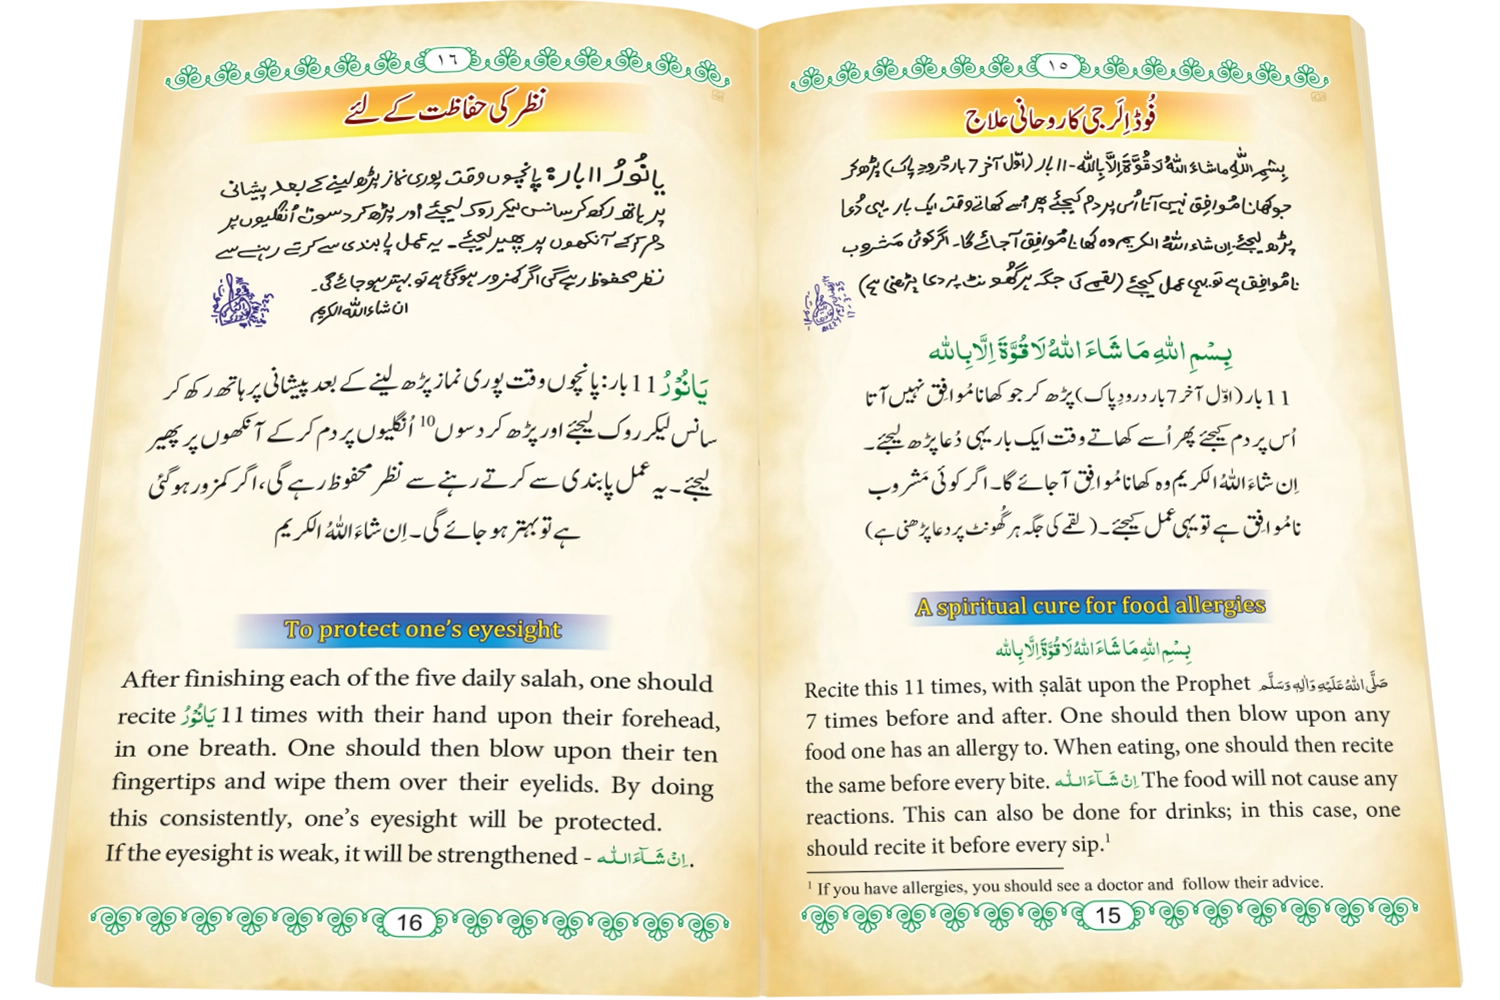 ١٥
فُوڈ اِلَرجی کا روحانی علاج
بِسْمِ اللہِ مَاشَاءَ اللہُ لَا قُوَّۃَ اِلَّا بِاللہ - ۱۱ بار (اوّل آخر 7 بار دُرودِ پاک) پڑھ کر
جو کھانا مُوافِق نہیں آتا اُس پر دم کیجئے پھر اُسے کھاتے وقت ایک بار یہی دُعا
پڑھ لیجئے۔ اِن شاءَ اللہُ الکریم وہ کھانا مُوافِق آجائے گا۔ اگر کوئی مَشروب
نامُوافِق ہے تو یہی عمل کیجئے (لقمے کی جگہ ہر گھُونٹ پر دعا پڑھنی ہے)
بِسْمِ اللہِ مَا شَاءَ اللہُ لَا قُوَّۃَ اِلَّا بِاللہ
11 بار (اوّل آخر 7 بار درودِ پاک) پڑھ کر جو کھانا مُوافِق نہیں آتا
اُس پر دم کیجئے پھر اُسے کھاتے وقت ایک بار یہی دُعا پڑھ لیجئے۔
اِن شاءَ اللہُ الکریم وہ کھانا مُوافِق آجائے گا۔ اگر کوئی مَشروب
نامُوافِق ہے تو یہی عمل کیجئے۔ (لقمے کی جگہ ہر گُھونٹ پر دعا پڑھنی ہے)
A spiritual cure for food allergies
بِسْمِ اللہِ مَا شَاءَ اللہُ لَا قُوَّۃَ اِلَّا بِاللہ
Recite this 11 times, with ṣalāt upon the Prophet صَلَّى اللهُ عَلَيْهِ وَاٰلِهٖ وَسَلَّم
7 times before and after. One should then blow upon any
food one has an allergy to. When eating, one should then recite
the same before every bite. اِنْ شَــآءَ الـلّٰـه The food will not cause any
reactions. This can also be done for drinks; in this case, one
should recite it before every sip.¹
¹ If you have allergies, you should see a doctor and follow their advice.
15
١٦
نظر کی حفاظت کے لئے
یَا نُوْرُ ۱۱ بار: پانچوں وقت پوری نماز پڑھ لینے کے بعد پیشانی
پر ہاتھ رکھ کر سانس لیکر روک لیجئے اور پڑھ کر دسوں اُنگلیوں پر
دم کر کے آنکھوں پر پھیر لیجئے۔ یہ عمل پابندی سے کرتے رہنے سے
نظر محفوظ رہے گی اگر کمزور ہو گئی ہے تو بہتر ہو جائے گی۔
ان شاءَ اللہ الکریم
یَانُوْرُ 11 بار: پانچوں وقت پوری نماز پڑھ لینے کے بعد پیشانی پر ہاتھ رکھ کر
سانس لیکر روک لیجئے اور پڑھ کر دسوں 10 اُنگلیوں پر دم کر کے آنکھوں پر پھیر
لیجئے۔ یہ عمل پابندی سے کرتے رہنے سے نظر محفوظ رہے گی، اگر کمزور ہو گئی
ہے تو بہتر ہو جائے گی۔ اِن شاءَ اللہُ الکریم
To protect one's eyesight
After finishing each of the five daily salah, one should
recite یَانُوْرُ 11 times with their hand upon their forehead,
in one breath. One should then blow upon their ten
fingertips and wipe them over their eyelids. By doing
this consistently, one's eyesight will be protected.
If the eyesight is weak, it will be strengthened - اِنْ شَــآءَ الـلّٰـه.
16